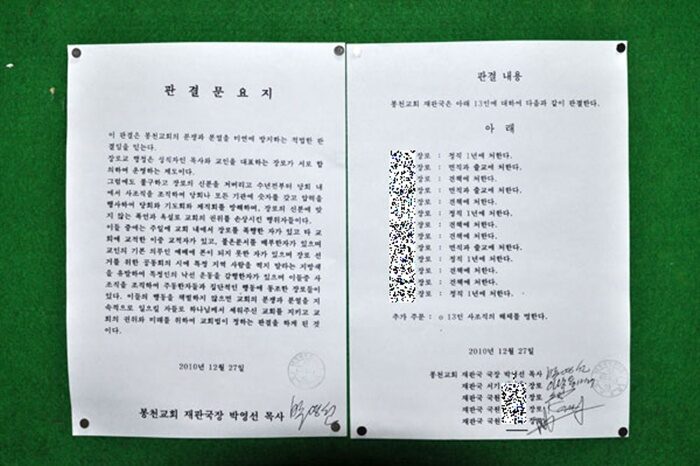 판 결 문 요 지
이 판결은 봉천교회의 분쟁과 분열을 미연에 방지하는 적법한 판
결임을 믿는다.
장로교 행정은 성직자인 목사와 교인을 대표하는 장로가 서로 합
의하여 운영하는 제도이다.
그럼에도 불구하고 장로의 신분을 저버리고 수년전부터 당회 내
에서 사조직을 조직하여 당회나 모든 기관에 숫자를 갖고 압력을
행사하여 당회와 기도회와 제직회를 방해하며, 장로의 신분에 맞
지 않는 폭언과 욕설로 교회의 권위를 손상시킨 행위자들이다.
이들 중에는 주일에 교회 내에서 장로를 폭행한 자가 있고 타 교
회에 교적한 이중 교적자가 있고, 불온문서를 배부한자가 있으며
교인의 기본 의무인 예배에 본이 되지 못한 자가 있으며 장로 선
거를 위한 공동회의 시에 특정 지역 사람을 찍지 말라는 지방색
을 유발하여 특정인의 낙선 운동을 감행한자가 있으며 이들중 사
조직을 조직하여 주동한자들과 집단적인 행동에 동조한 장로들이
있다. 이들의 행동을 책벌하지 않으면 교회의 분쟁과 분열을 지
속적으로 일으킬 자들로 하나님께서 세워주신 교회를 지키고 교
회의 권위와 미래를 위하여 교회법이 정하는 판결을 하게 된 것
이다.
2010년 12월 27일
봉천교회 재판국장 박영선 목사
판결 내용
봉천교회 재판국은 아래 13인에 대하여 다음과 같이 판결한다.
아 래
장로 : 정직 1년에 처한다.
장로 : 면직과 출교에 처한다.
장로 : 견책에 처한다.
장로 : 면직과 출교에 처한다.
장로 : 견책에 처한다.
장로 : 정직 1년에 처한다.
장로 : 견책에 처한다.
장로 : 견책에 처한다.
장로 : 면직과 출교에 처한다.
장로 : 정직 1년에 처한다.
장로 : 견책에 처한다.
장로 : 견책에 처한다.
장로 : 정직 1년에 처한다.
추가 주문 : o 13인 사조직의 해체를 명한다.
2010년 12월 27일
봉천교회 재판국 국장 박영선 목사
재판국 서기 장로
재판국 국원 장로
재판국 국원 장로
재판국 국원 장로